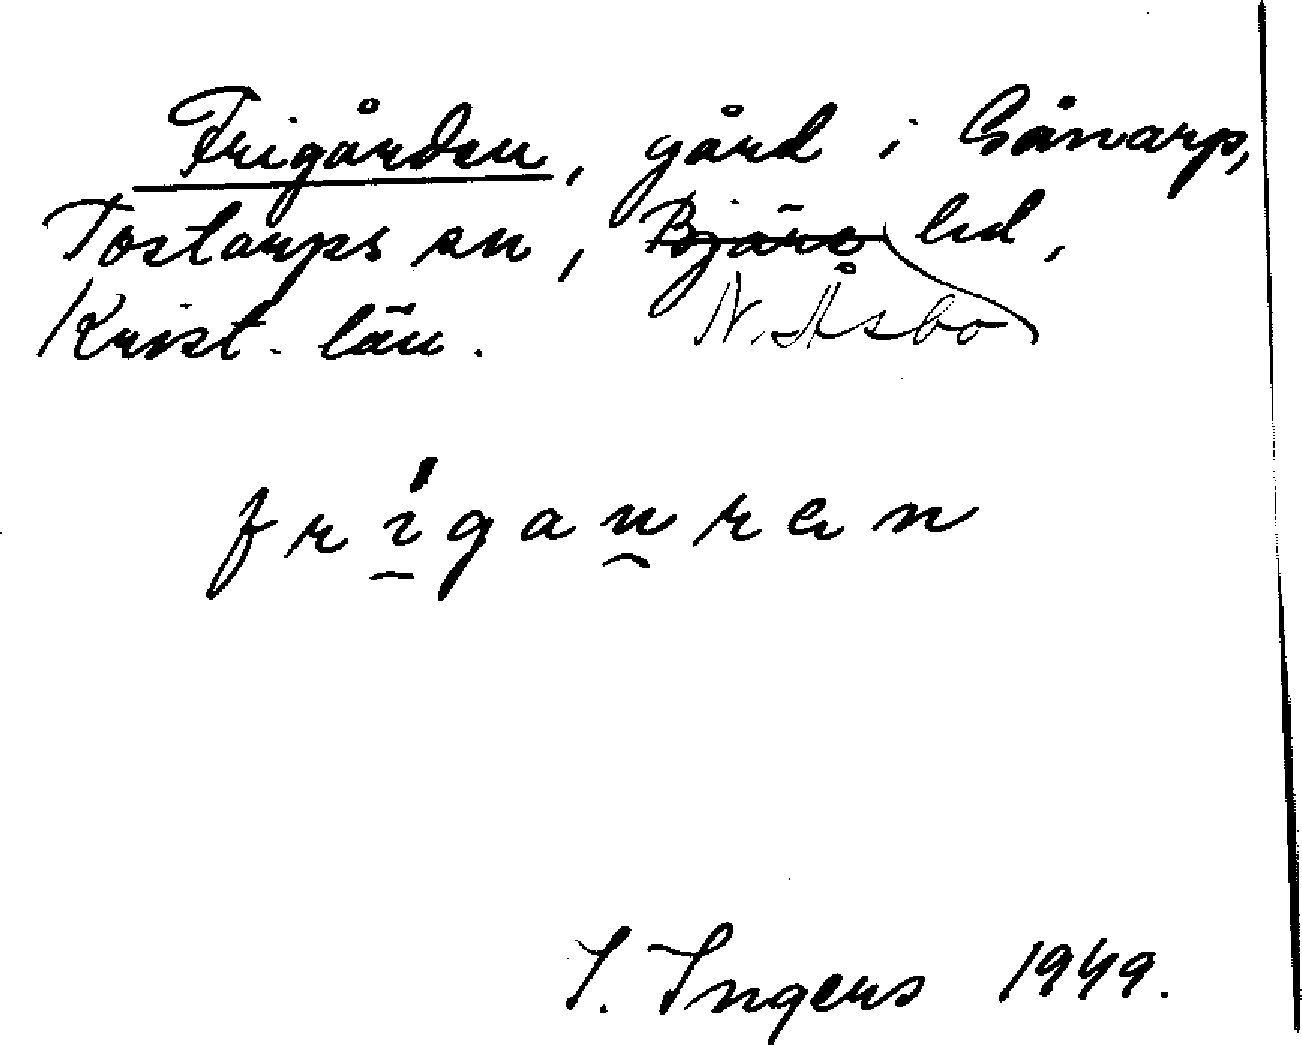 Frigården, gård i Gånarp,
Tostarps sn, Bjäre hd,
N. Åsbo
Krist. län.
frigauren
I. Ingers 1949.